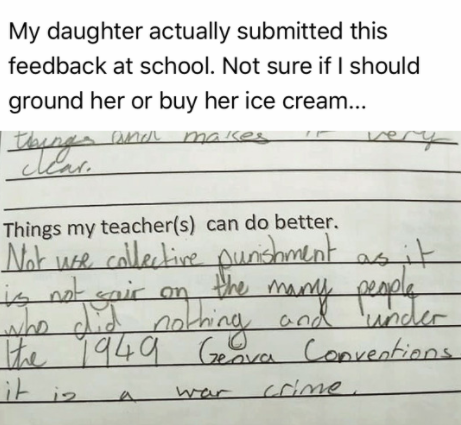 My daughter actually submitted this
feedback at school. Not sure if I should
ground her or buy her ice cream...
things and makes it very
clear.
Things my teacher(s) can do better.
Not use collective punishment as it
is not fair on the many people
who did nothing and under
the 1949 Genva Conventions
it is a war crime.